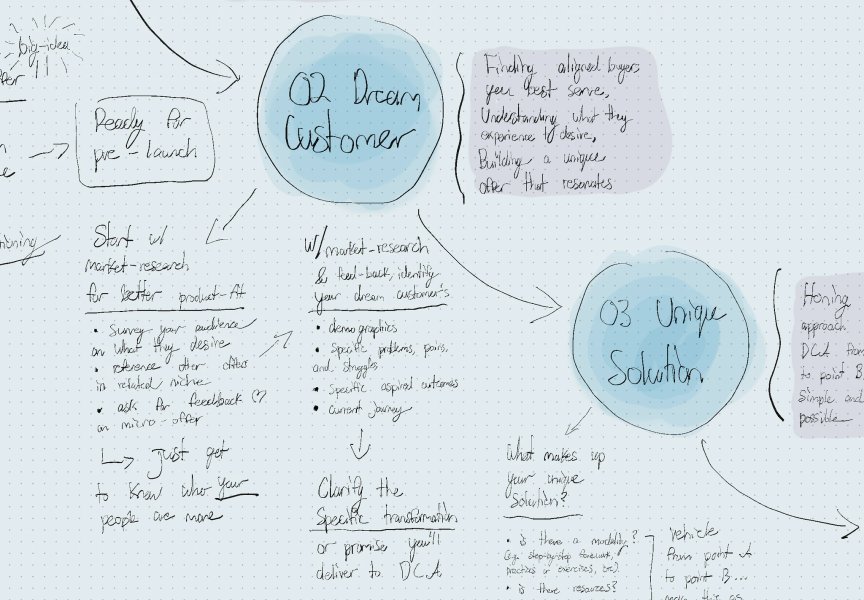 big-idea
Ready for
pre-launch
02 Dream
Customer
Finding aligned buyers
you best serve,
Understanding what they
experience to desire,
Building a unique
offer that resonates
Start w/
market-research
for better product-fit
• Survey your audience
on what they desire
• reference other offers
in related niche
• ask for feedback ♡
on micro-offer
↳ Just get
to know who your
people are more
W/ market-research
& feed-back, identify
your dream customer's
• demographics
• Specific problems, pains,
and struggles
• Specific aspired outcomes
• current journey
Clarify the
Specific transformation
or promise you'll
deliver to DCA
03 Unique
Solution
Honing
approach
DCA from
to point B
simple and
possible
What makes up
your unique
Solution?
• is there a modality?
(e.g. step-by-step framework,
practices or exercises, etc).
• is there resources?
vehicle
from point A
to point B...
make this as